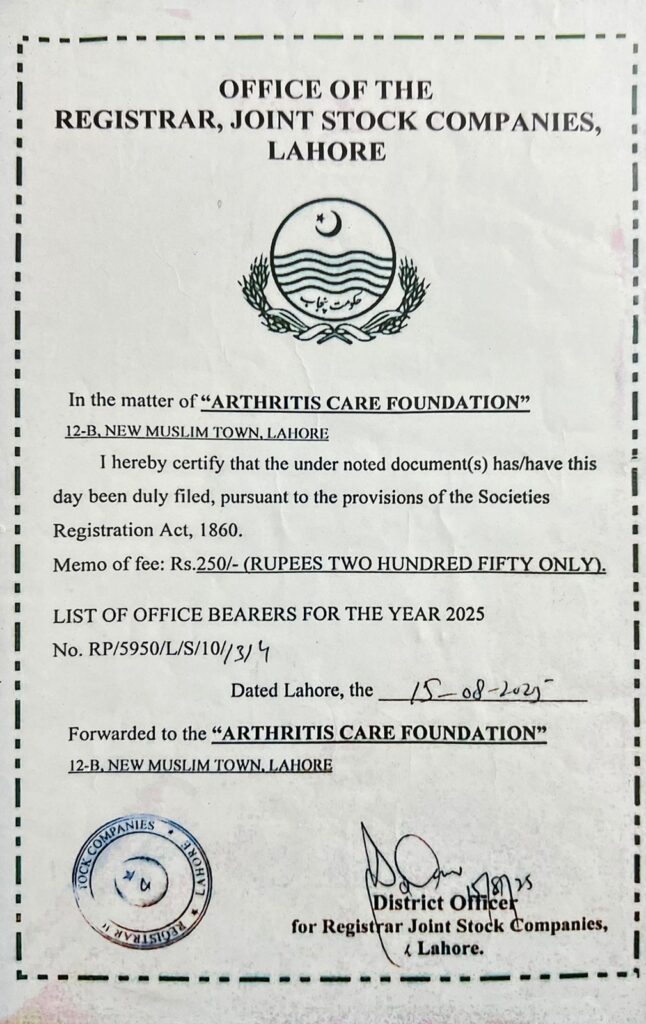 OFFICE OF THE
REGISTRAR, JOINT STOCK COMPANIES,
LAHORE
حکومت پنجاب
In the matter of “ARTHRITIS CARE FOUNDATION”
12-B, NEW MUSLIM TOWN, LAHORE
I hereby certify that the under noted document(s) has/have this
day been duly filed, pursuant to the provisions of the Societies
Registration Act, 1860.
Memo of fee: Rs.250/- (RUPEES TWO HUNDRED FIFTY ONLY).
LIST OF OFFICE BEARERS FOR THE YEAR 2025
No. RP/5950/L/S/10/
Dated Lahore, the 15-08-2025
Forwarded to the “ARTHRITIS CARE FOUNDATION”
12-B, NEW MUSLIM TOWN, LAHORE
TOCK COMPANIES * LAHORE * REGISTRAR
15/8/25
District Officer
for Registrar Joint Stock Companies,
Lahore.